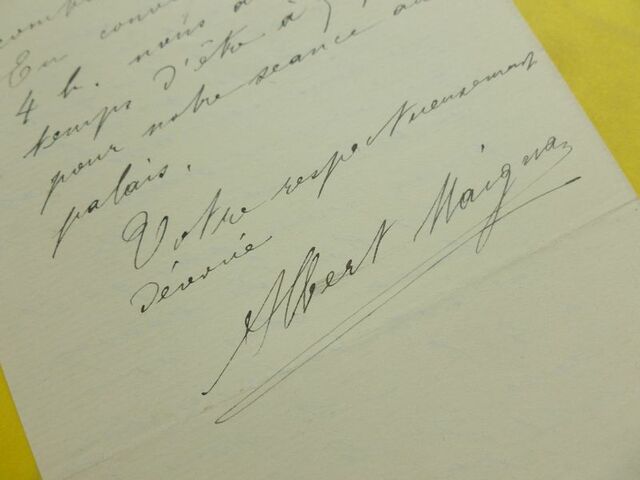 En conv
4 h. nous a
temps d'été à 5
pour notre séance au
palais.
Votre respectueusement
dévoué
Albert Maignan